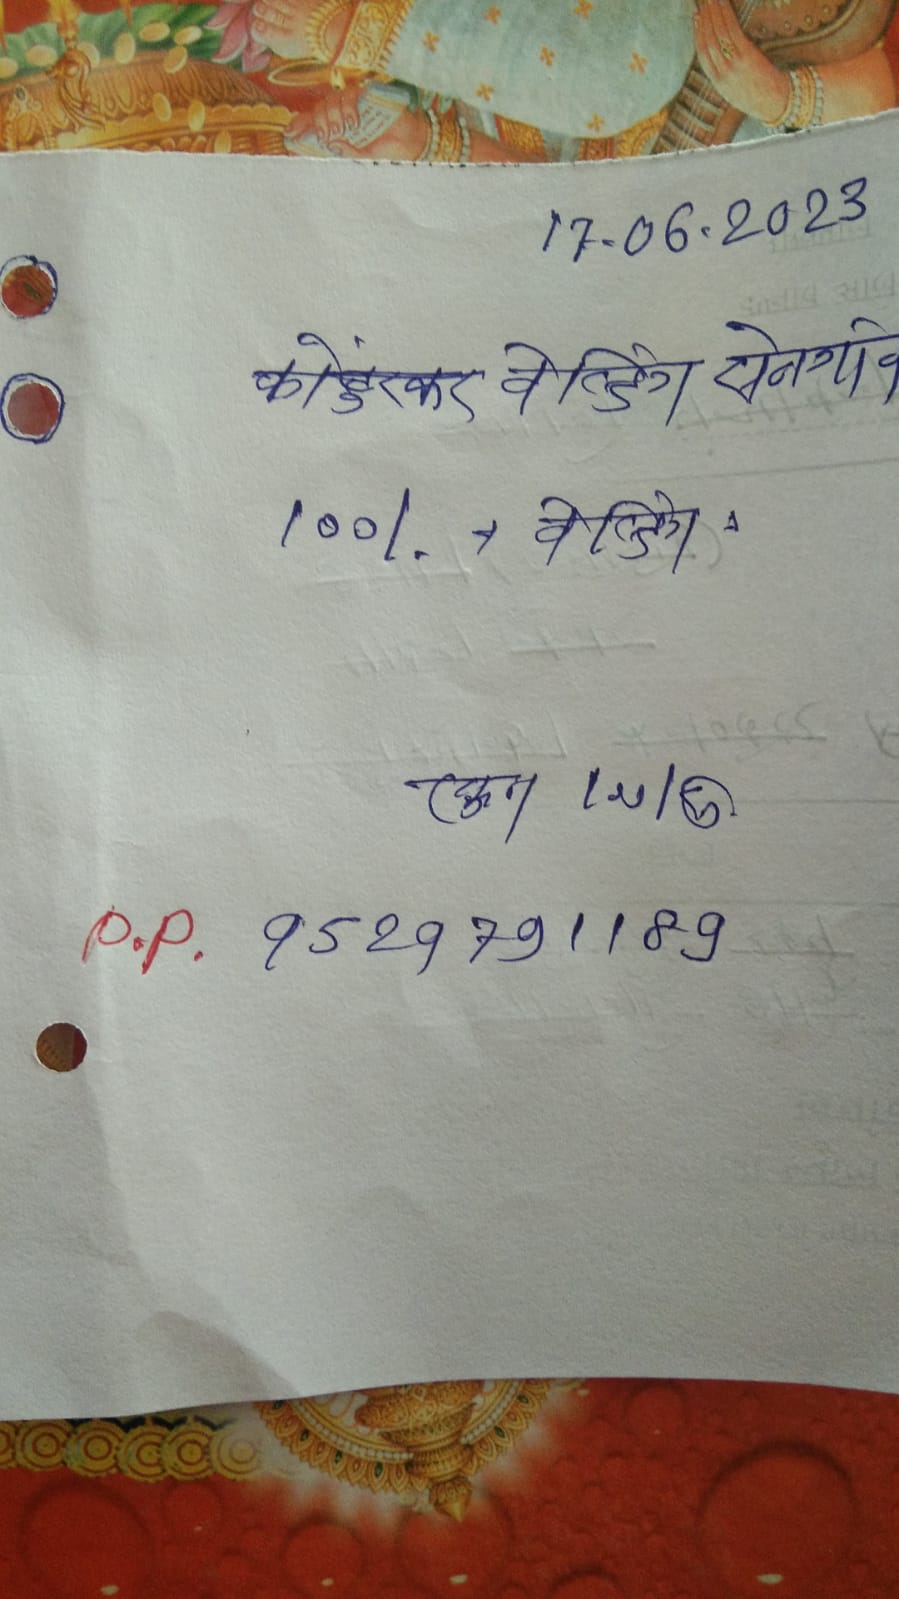 17-06-2023
कोडुंरकर वेल्डिंग सेनगांव
100/. → वेल्डिंग
एकुन
P.P. 9529791189